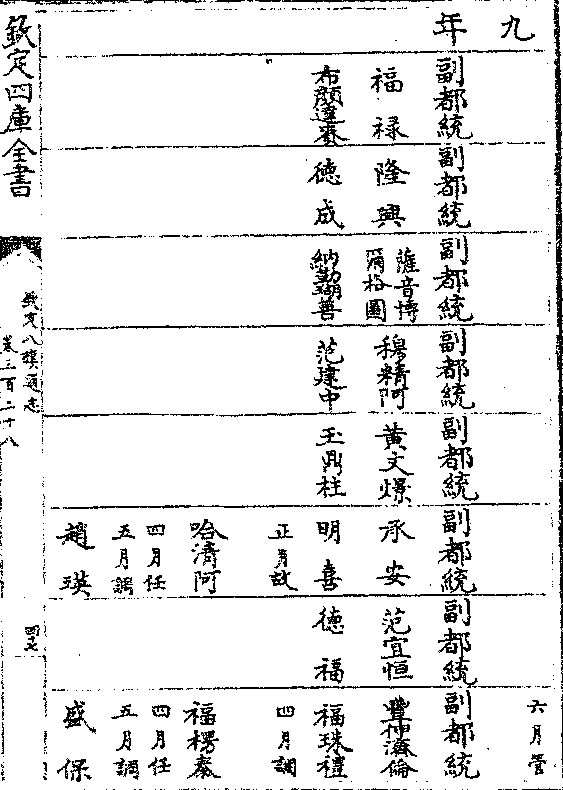 六月管
九年
副都統 福禄 布顏達賚
副都統 隆興 德成
副都統 薩音博爾格圖 納勤善
副都統 穆精阿 范建中
副都統 黃文㷡 王鼎柱
副都統 承安 明喜 正月故 哈清阿 四月任 五月調 趙瑛
副都統 范宜恒 德福
副都統 豐紳濟倫 福珠禮 四月調 福楞泰 四月任 五月調 盛保
欽定四庫全書
欽定八旗通志
卷三百二十八